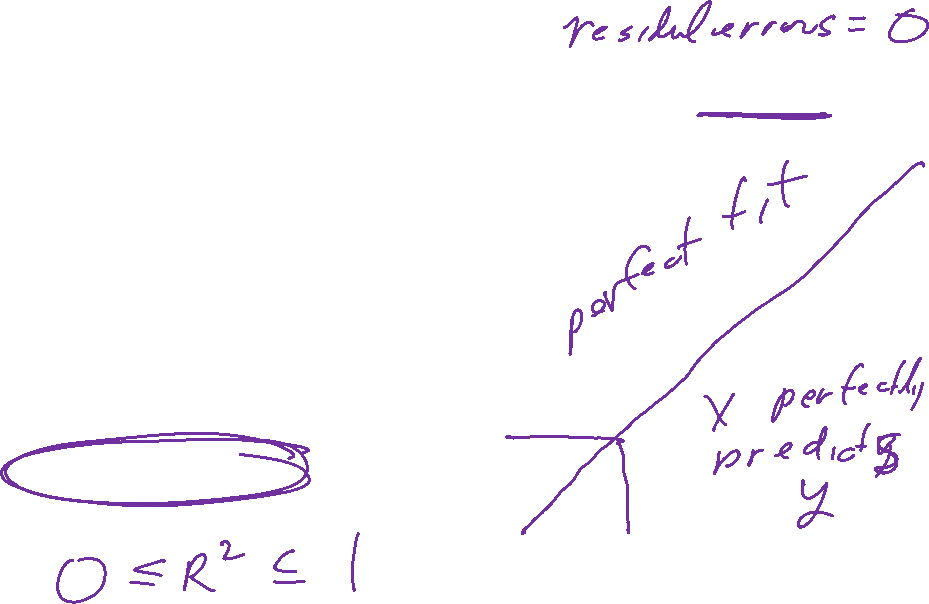 residual errors = 0
perfect fit
X perfectly
predicts
y
0 ≤ R² ≤ 1